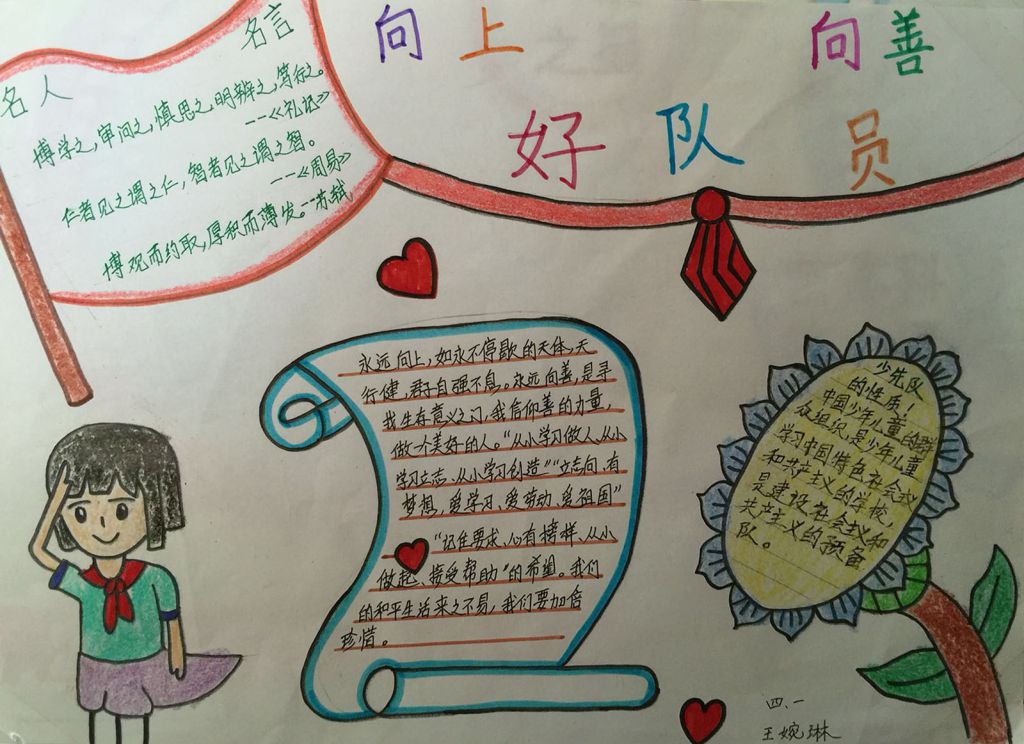 向上 向善
好队员
名人 名言
博学之,审问之,慎思之,明辨之,笃行之。
--《礼记》
仁者见之谓之仁,智者见之谓之智。
--《周易》
博观而约取,厚积而薄发。--苏轼
永远向上,如永不停歇的天体,天
行健,君子自强不息。永远向善,是寻
找生存意义之门,我信仰善的力量,
做一个美好的人。“从小学习做人、从小
学习立志、从小学习创造”“立志向、有
梦想,爱学习、爱劳动、爱祖国”
“记住要求、心有榜样、从小
做起、接受帮助”的希望。我们
的和平生活来之不易,我们要加倍
珍惜。
少先队
的性质:
中国少年儿童的群
众组织,是少年儿童
学习中国特色社会主义
和共产主义的学校,
是建设社会主义和
共产主义的预备
队。
四、一
王婉琳